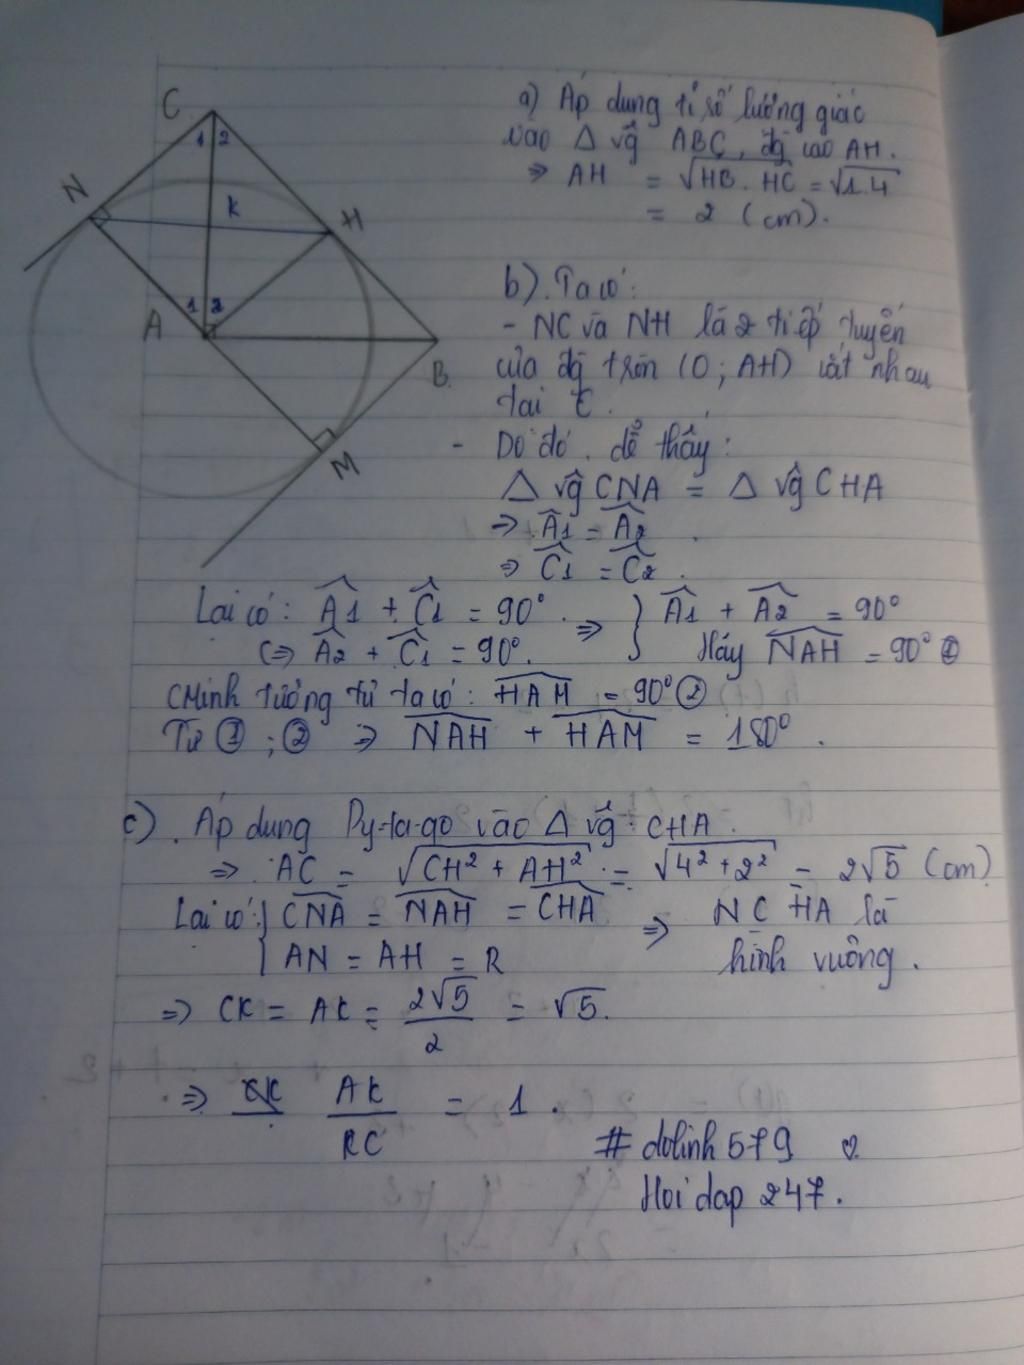 C
1 2
N
K
H
1 2
A
B
M
a) Áp dụng tỉ số lượng giác
vào Δ vg ABC, đg cao AH.
⇒ AH = √HB.HC = √1.4
= 2 (cm).
b). Ta có:
- NC và NH là 2 tiếp tuyến
của đg tròn (O; AH) cắt nhau
tại C.
- Do đó, dễ thấy:
Δ vg CNA = Δ vg CHA
⇒ Â1 = Â2
⇒ Ĉ1 = Ĉ2.
Lại có: Â1 + Ĉ1 = 90° ⇒ } Â1 + Â2 = 90°
(⇒ Â2 + Ĉ1 = 90°. Hay NAH = 90° ①
CMinh tương tự ta có: HAM = 90° ②
Từ ①; ② ⇒ NAH + HAM = 180°.
c). Áp dụng Py-ta-go vào Δ vg CHA.
⇒ AC = √CH² + AH² = √4² + 2² = 2√5 (cm)
Lại có: { CNA = NAH = CHA ⇒ NCHA là
AN = AH = R hình vuông.
⇒ CK = AK = 2√5/2 = √5.
⇒ AK/KC = 1.
# dolinh579 ♡.
Hoidap 247.